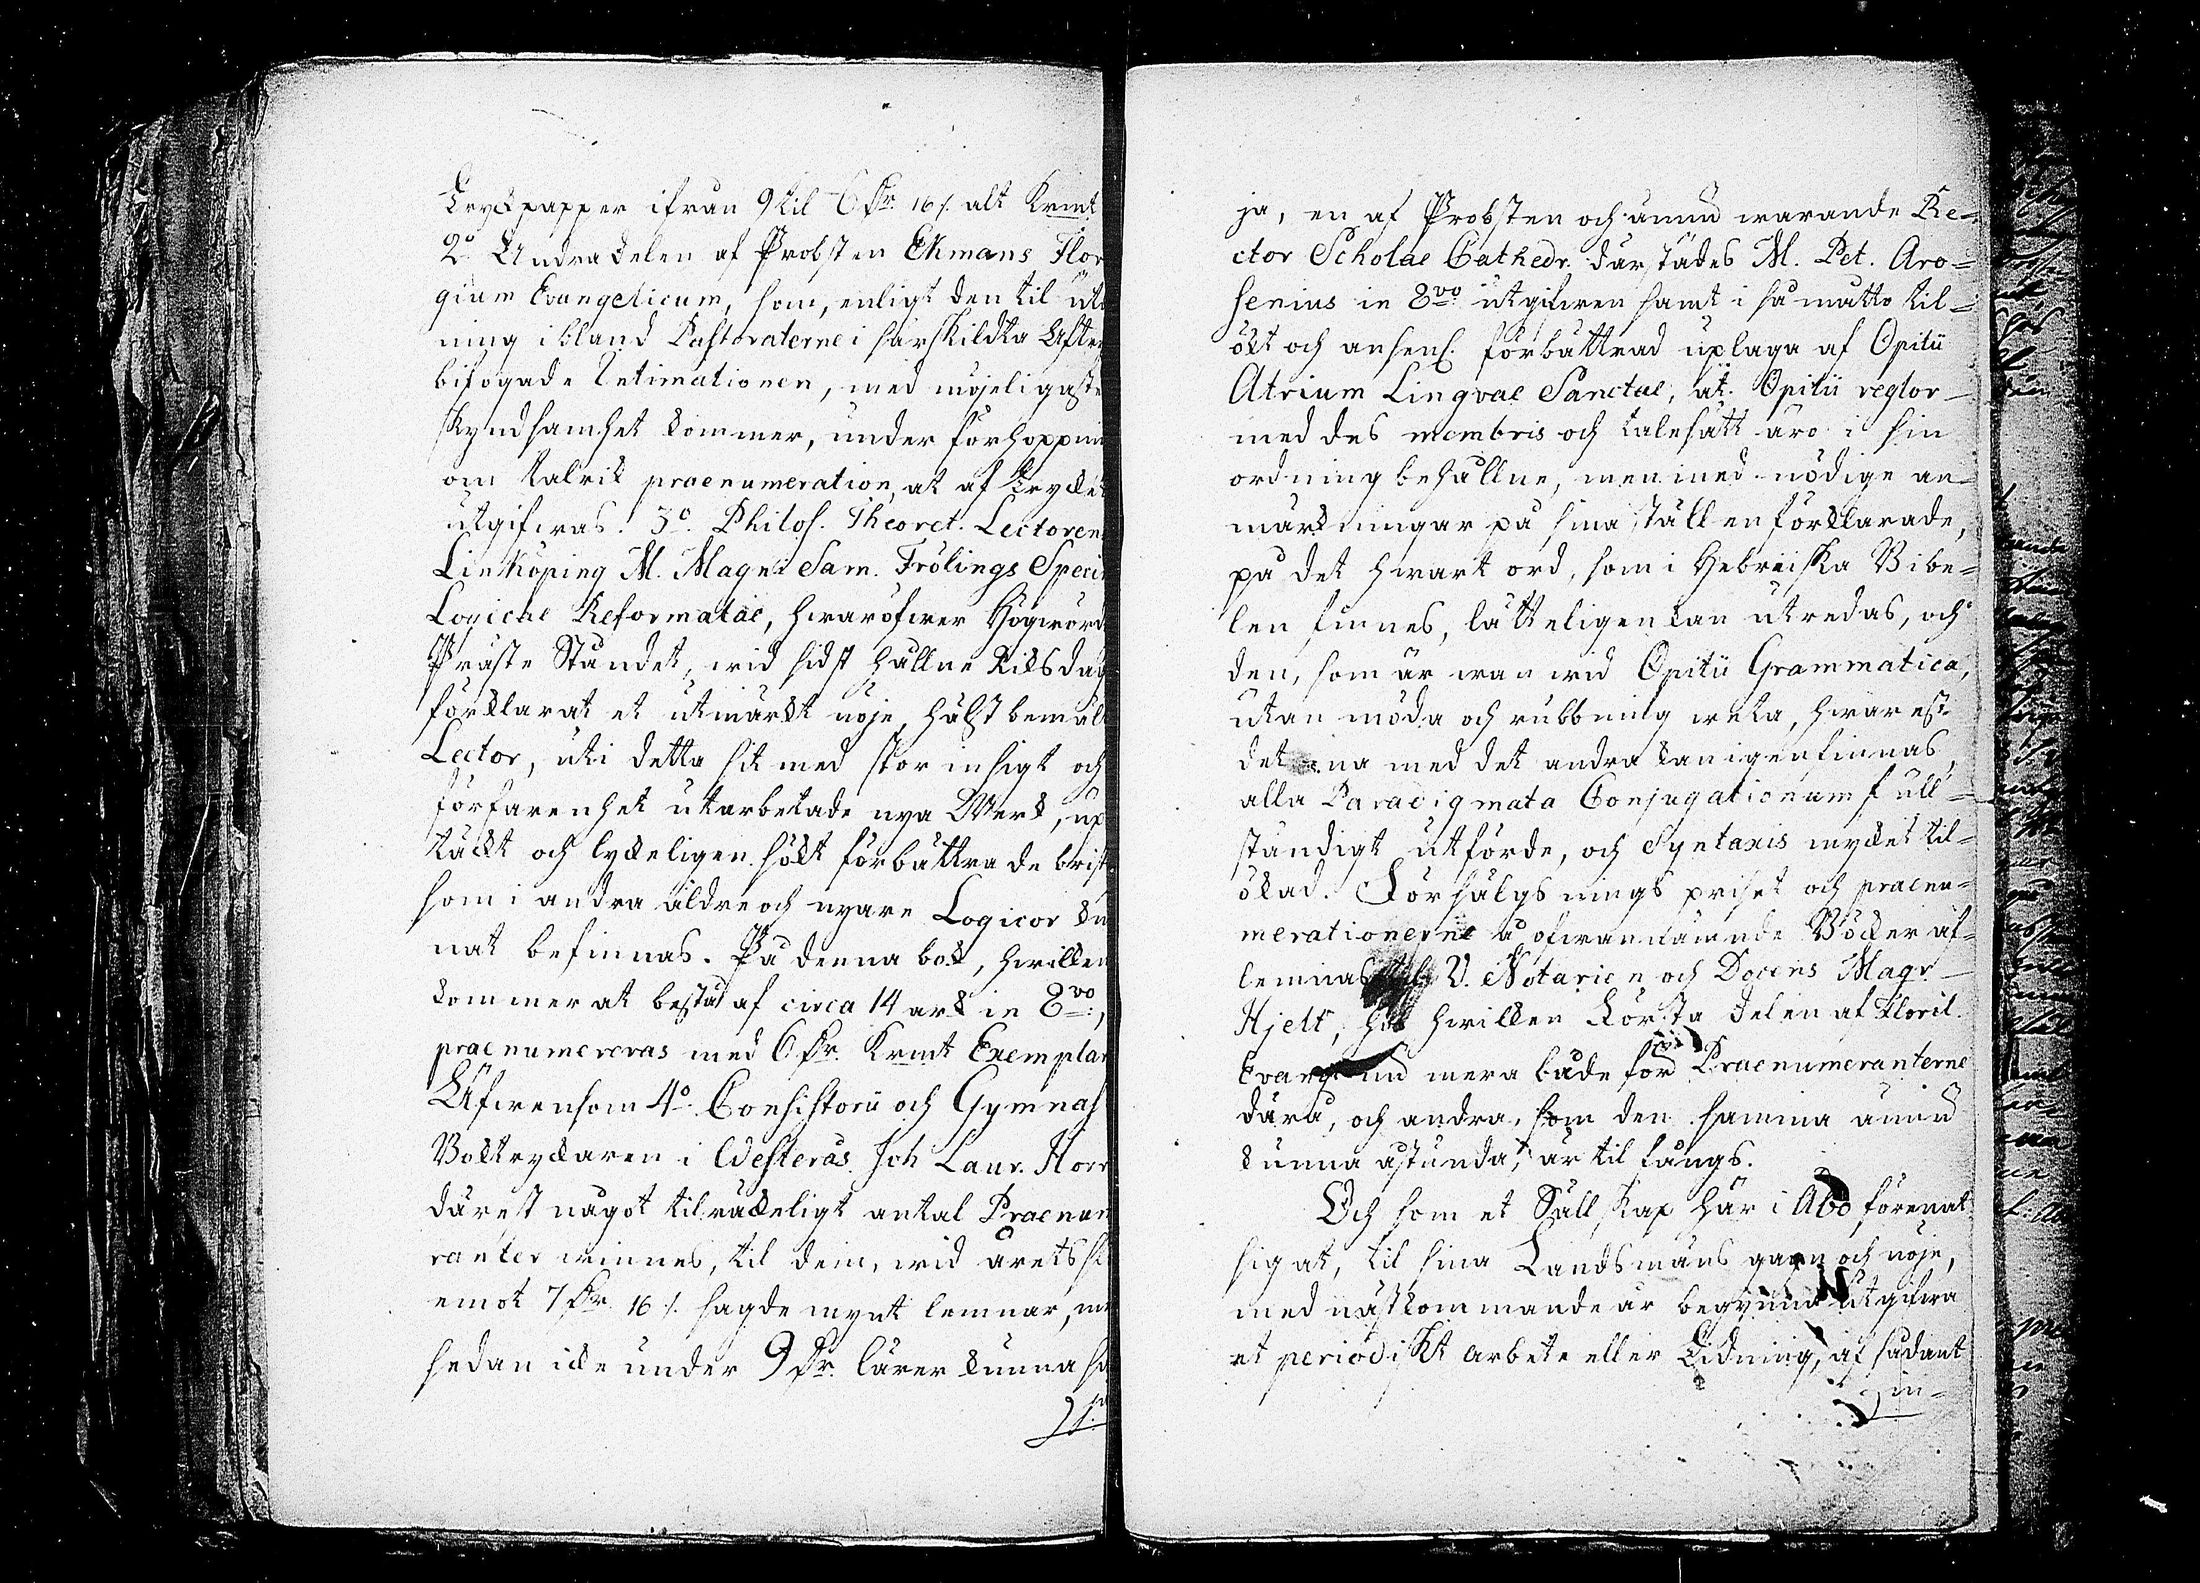 Tryckpapper ifrån 9 til 6 Dr. 16 /. alt Krmt
2:o Andra delen af Probsten Ekmans Flor
gium Evangelicum, som, enligt den til ut
ning ibland Pastoraterne i särskildta Aftry
bifogade Intimationen, med möjeligaste
skyndsamhet kommer, under förhoppnin
om talrik praenumeration, at af trycket
utgifwas. 3:o Philos. Theoret. Lectoren
Linköping M. Magni Sam. Frölings Speci
Logiche Reformatae, hwaröfwer Högwörd
Präste Ståndet, wid sidst hållne Riksdag
förklarat et utmärkt nöje, hälst bemält
Lector, uti detta sit med stor insigt och
förfarenhet utarbetade nya Werk, up
täckt och lyckeligen sökt förbättra de brist
som i andra äldre och nyare Logicor kun
nat befinnas. På denna bok, hwilken
kommer at bestå af circa 14 ark in 8:vo,
praenumereras med 6 Dr. Krmt Exemplar
Äfwensom 4:o Consistorii och Gymnas
Boktryckaren i Westerås Joh Laur. Horr
därest något tilräckeligt antal Praenum
ranter winnes, til dem, wid årets sl
emot 7 Dr. 16 /. sagde mynt lemnar, me
sedan icke under 9 Dr. lärer kunna s
ja, en af Probsten och ännu warande Re-
ctor Scholae Cathedr. därstädes M. Pet. Aro-
senius in 8:vo utgifwen samt i så måtto til-
ökt och ansenl. förbättrad uplaga af Opitii
Atrium Lingvae Sanctae, at Opitii reglor
med des membris och talesätt äro i sin
ordning behållne, men med nödige an-
märkningar på sina ställen förklarade,
på det hwart ord, som i Hebreiska Bibe-
len finnes, lätteligen kan utredas, och
den, som är wan wid Opitii Grammatica,
utan möda och rubbning weta, hwarest
det ena med det andra kan igenfinnas,
alla Paradigmata Conjugationum full-
ständigt utförde, och Syntaxis mycket til-
ökad. Försälgsnings priset och praenu-
merationerne å ofwannämnde Böcker af-
lemnas til V. Notarien och Docens Magr
Hjelt, hos hwilken Första delen af Floril.
Evang. nu mera både för Praenumeranterne
därå, och andra, som den samma ännu
kunna åstunda, är til fångs.
Och som et Sällskap här i Åbo förenat
sig at, til sina Landsmäns gagn och nöje,
med nästkommande år begynna utgifwa
et periodiskt arbete eller Tidning, af sådant
in-